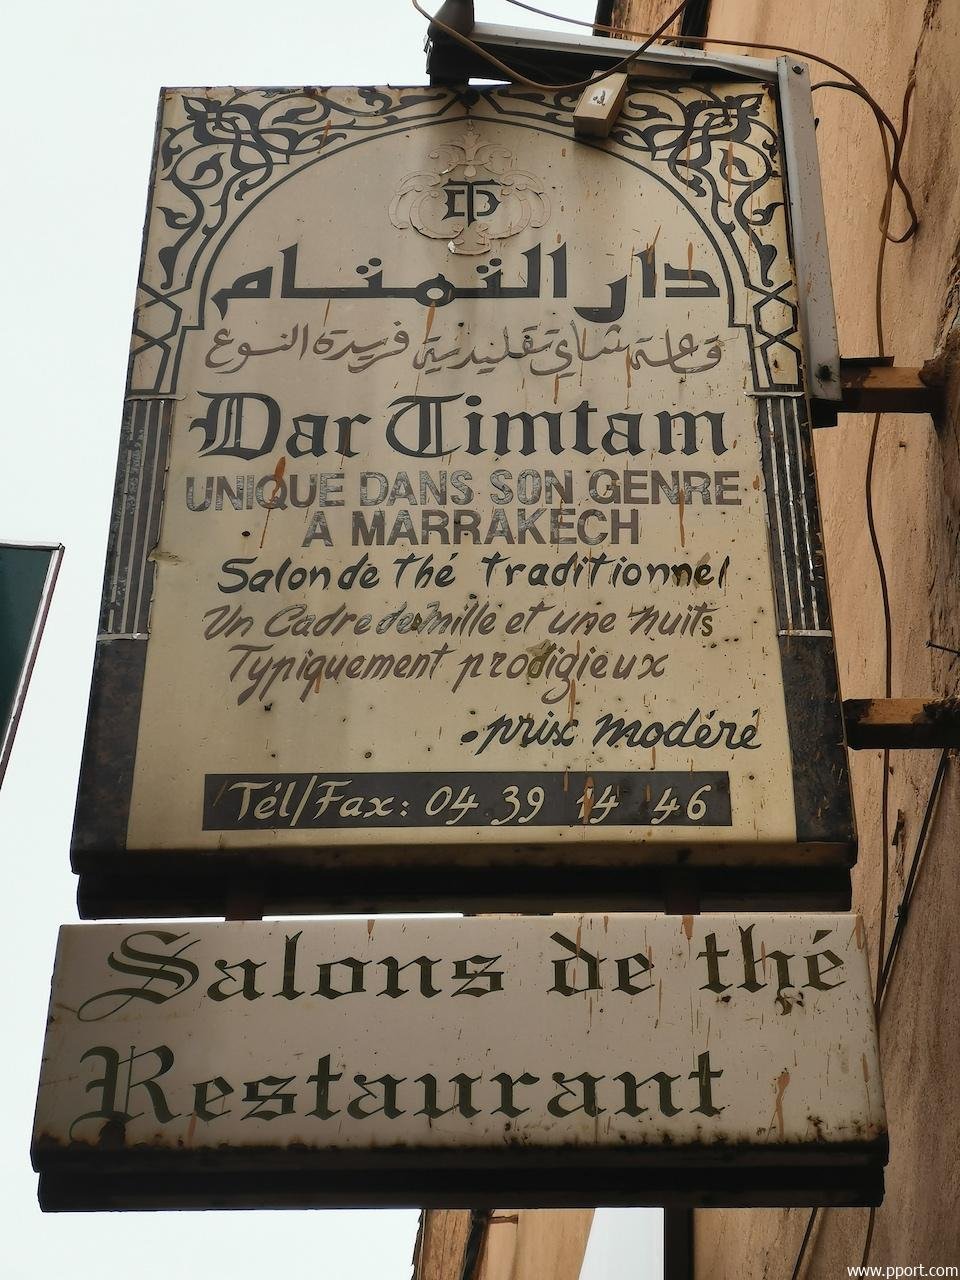 DT
دار التمتام
وقاعة شاي تقليدية فريدة النوع
Dar Timtam
UNIQUE DANS SON GENRE
A MARRAKECH
Salon de thé traditionnel
Un Cadre de mille et une nuits
Typiquement prodigieux
. prix modéré
Tél/Fax: 04 39 14 46
Salons de thé
Restaurant
www.pport.com